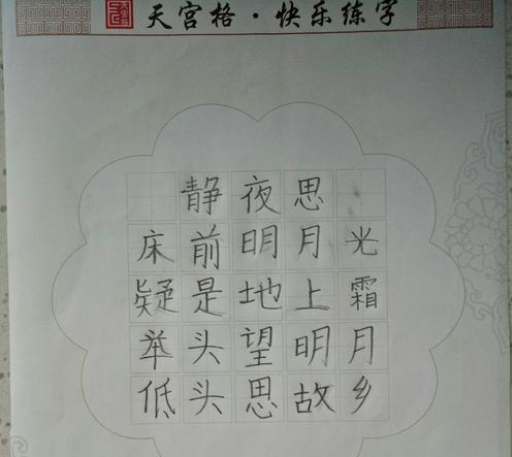 天宫格·快乐练字
静夜思
床前明月光
疑是地上霜
举头望明月
低头思故乡